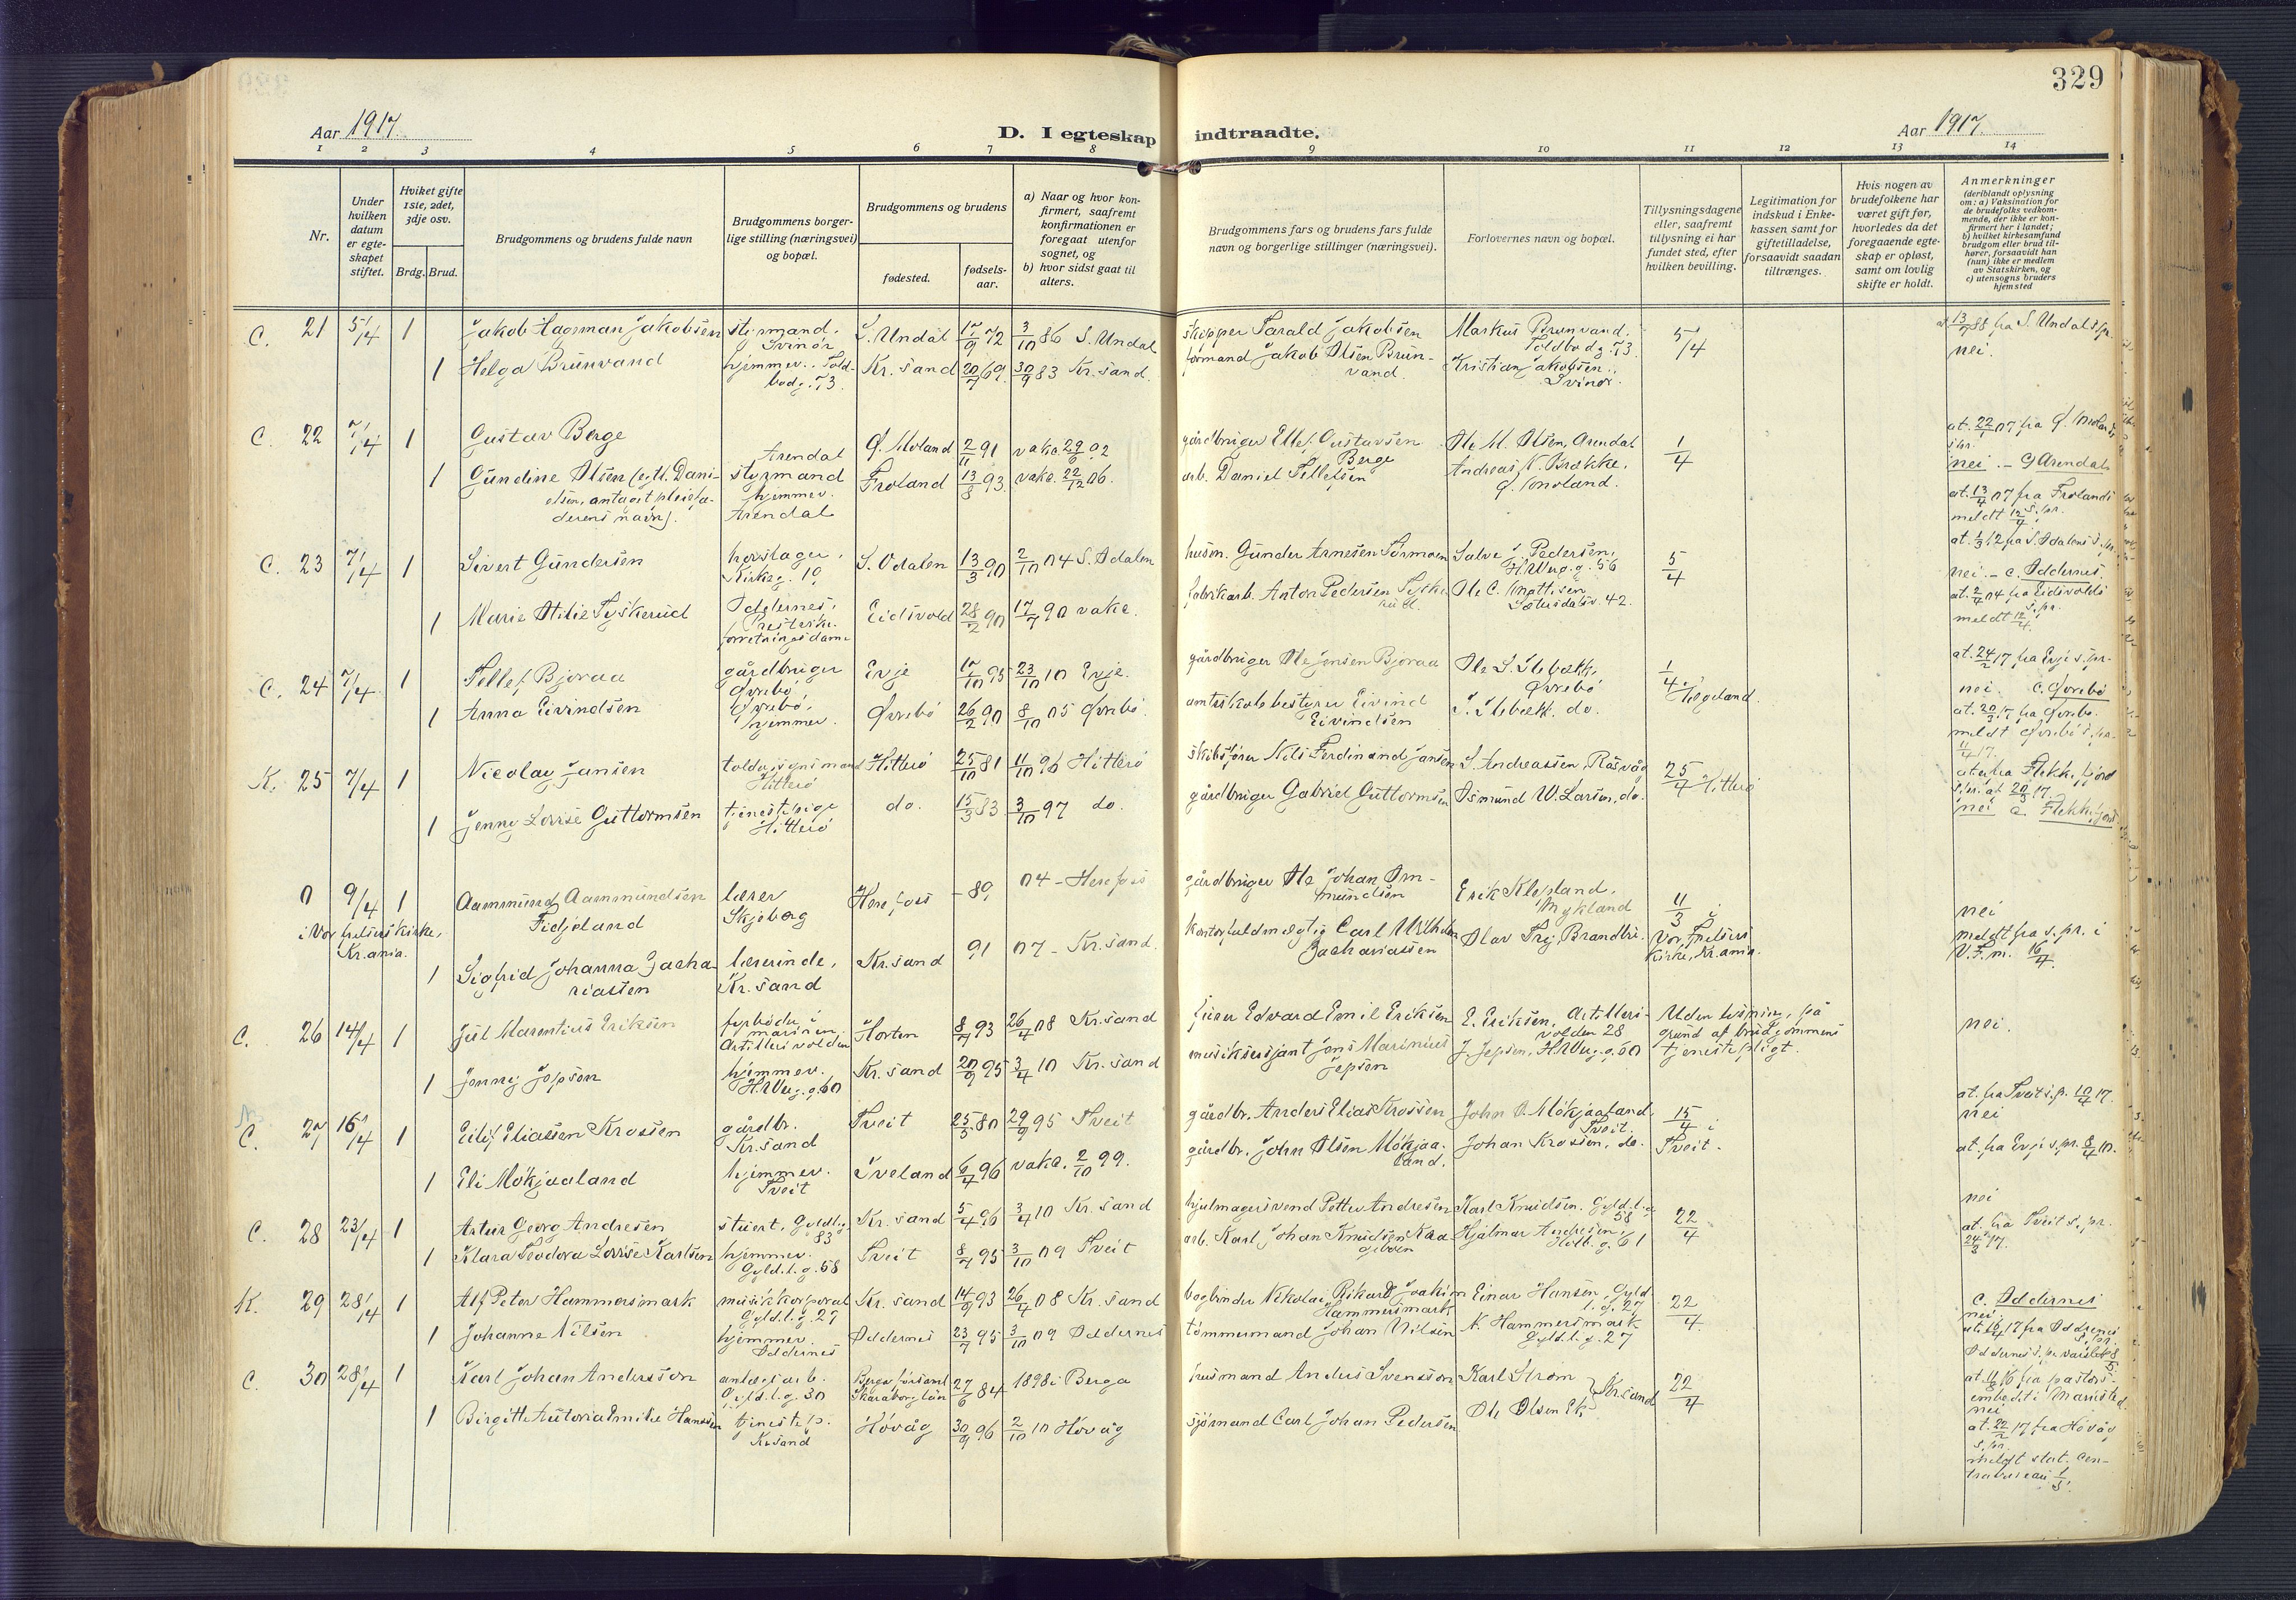 329
Aar 1917.
D. I egteskap indtraadte.
Aar 1917.
1 2 3 4 5 6 7 8 9 10 11 12 13 14
Nr.
Under hvilken datum er egteskapet stiftet.
Hviket gifte 1ste, 2det, 3dje osv.
Brdg. Brud.
Brudgommens og brudens fulde navn
Brudgommens borgerlige stilling (næringsvei) og bopæl.
Brudgommens og brudens
fødested.
fødselsaar.
a) Naar og hvor konfirmert, saafremt konfirmationen er foregaat utenfor sognet, og
b) hvor sidst gaat til alters.
Brudgommens fars og brudens fars fulde navn og borgerlige stillinger (næringsvei).
Forlovernes navn og bopæl.
Tillysningsdagene eller, saafremt tillysning ei har fundet sted, efter hvilken bevilling.
Legitimation for indskud i Enkekassen samt for giftetilladelse, forsaavidt saadan tiltrænges.
Hvis nogen av brudefolkene har været gift før, hvorledes da det foregaaende egteskap er opløst, samt om lovlig skifte er holdt.
Anmerkninger
(deriblandt oplysning om: a) Vaksination for de brudefolks vedkommende, der ikke er konfirmert her i landet; b) hvilket kirkesamfund brudgom eller brud tilhører, forsaavidt han (hun) ikke er medlem av Statskirken, og c) utensogns bruders hjemsted
C. 21 5/4 1 Jakob Hageman Jakobsen styrmand. Svinör S. Undal 17/9 72 3/10 86 S. Undal skipper Tarald Jakobsen Markus Brunvand, Toldbodg. 73 5/4 at 13/9 88 fra S. Undal s.pr.
1 Helga Brunvand hjemmev. Toldbodg. 73. Kr.sand 20/7 69 30/9 83 Kr.sand. formand Jakob Olsen Brunvand. Kristian Jakobsen, Svinör. nei.
C. 22 7/4 1 Gustav Berge Arendal styrmand Ø. Moland 2/11 91 vake 29/6 02 gårdbruger Ellef Gustavsen Berge Ole M. Olsen, Arendal 1/4 at. 22/1 07 fra Ø. Moland s.pr.
1 Gundine Olsen (egtl. Danielsen, antaget pleiefaderens navn). hjemmev. Arendal Froland 13/8 93 vake. 22/12 06. arb. Daniel Tellefsen Andreas K. Brække, Ø. Moland. nei. - C Arendal at. 13/4 07 fra Frolands s.pr. meldt 12/4.
C. 23 7/4 1 Sivert Gundersen Kirkeg. 10 S. Odalen 13/3 90 2/10 04 S. Odalen husm. Gunder Arnesen Salve J. Pedersen, H. Werg. g. 56 5/4 at. 1/3 12 fra S. Odalens s.pr.
1 Marie Otilie Tyskerud Oddernes, forretningsdame Eidsvold 28/2 90 17/7 90 vake. fabrikarb. Anton Pedersen Ole C. Mattisen Setersdalsv. 42. nei. - c. Oddernes. at. 2/4 04 fra Eidsvolds s.pr. meldt 12/4.
C. 24 7/4 1 Tellef Bjoraa gårdbruger Øvrebö Evje 17/10 95 23/10 10 Evje. gårdbruger Ole Jensen Bjoraa Ole S. Stebekk, Øvrebö 1/4 i Hægeland. at. 24/2 17 fra Evje s.pr.
1 Anna Eivindsen Øvrebö, hjemmev. Øvrebö 26/2 90 8/10 05 Øvrebö amtsskolebestyrer Eivind Eivindsen S. Stebekk. do. nei. C. Øvrebö at. 20/3 17 fra Øvrebö. meldt Øvrebö s.pr. 11/4 17.
K. 25 7/4 1 Nicolay Jansen Hitterö Hitterö 25/10 81 11/10 96 Hitterö skibsförer Nils Ferdinand Jansen S. Andreassen, Rasvåg 25/4 Hitterö
1 Jenny Lovise Guttormsen tjenestepige Hitterö do. 15/3 83 3/10 97 do. gårdbruger Gabriel Guttormsen Osmund W. Larsen, do. at. fra Flekkefjord s.pr. at 20/3 17. nei c. Flekkefjord
0 9/4 1 Aammund Aammundsen Fidjeland lærer Skjeberg Herefoss - 89 04 - Herefoss gårdbruger Ole Johan Ommundsen Erik Klepland, Mykland 11/3 i Vor Frelsers kirke, Kr.ania. nei
i Vor frelsers kirke, Kr.ania.
1 Sigfrid Johanna Zachariassen lærerinde, Kr.sand Kr.sand 91 07 - Kr.sand kontorfuldmegtig Carl Wilhelm Zachariassen Olav Trej Brandtsi. meldt fra s.pr. i V.F.m. 16/4.
C. 26 14/4 1 Jul Marentius Eriksen fyrböder i marinen, Artillerivolden Horten 8/7 93 26/4 08 Kr.sand fürer Edvard Emil Eriksen E. Eriksen, Artillerivolden 28 Uden lysning, på grund af brudgommens tjenestepligt. nei.
1 Jenny Jepsen hjemmev. H. Werg. g. 60 Kr.sand 20/9 95 3/4 10 Kr.sand musiksersjant Jens Marinius Jepsen J. Jepsen, H. Werg. g. 60
C. 27 16/4 1 Eilif Eliassen Krossen gårdbr. Kr.sand Tveit 25/5 80 29/9 95 Tveit gårdbr. Anders Elias Krossen John O. Mökjaaland, Tveit. 15/4 i Tveit. at. fra Tveit s.pr. 10/4 17. nei
1 Eli Mökjaaland hjemmev. Tveit Iveland 6/4 96 vake. 2/10 99. gårdbr. John Olsen Mökjaaland. Johan Krossen, do. at. fra Evje s.pr. 8/4 10.
C. 28 23/4 1 Artur Georg Andresen stuert, Gyldl. g. 83 Kr.sand 5/4 96 3/4 10 Kr.sand hjulmagersvend Petter Andresen Karl Knudsen. Gyld. l. g. 58 22/4 nei
1 Klara Teodora Lovise Karlsen hjemmev. Gyld. l. g. 58 Tveit 8/7 95 3/10 09 Tveit arb. Karl Johan Knudsen Hjalmar Andresen, Holb. g. 61 at. fra Tveit s.pr. 24/3 17.
K. 29 28/4 1 Alf Peter Hammersmark musikkorporal Gyld. l. g. 27 Kr.sand 14/9 93 26/4 08 Kr.sand bogbinder Nikolai Rikard Joakim Hammersmark Einar Hansen, Gyld. l. g. 27 22/4 C. Oddernes
1 Johanne Nilsen hjemmev. Oddernes Oddernes 23/7 95 3/10 09 Oddernes tömmermand Johan Nilsen N. Hammersmark Gyld. l. g. 27 nei. at. 17 fra Oddernes s.pr. Oddernes s.pr. varslet 8/5
C. 30 28/4 1 Karl Johan Andersson anlegsarb. Gyld. l. g. 30 Berga församl. Skaraborg län 27/6 84 1898 i Berga husmand Anders Svensson Karl Strøm Kr.sand 22/4 at. 16 fra pastorsembedet i Mariested nei
1 Birgitte Autoria Emilie Hanssen tjenestep. Kr.sand Hövåg 30/9 96 2/10 10 Hövåg sjömand Carl Johan Pedersen Ole Olsen Ek at. 22/2 17 fra Hövåg s.pr. meldt stat. Centralbureau 1/5.